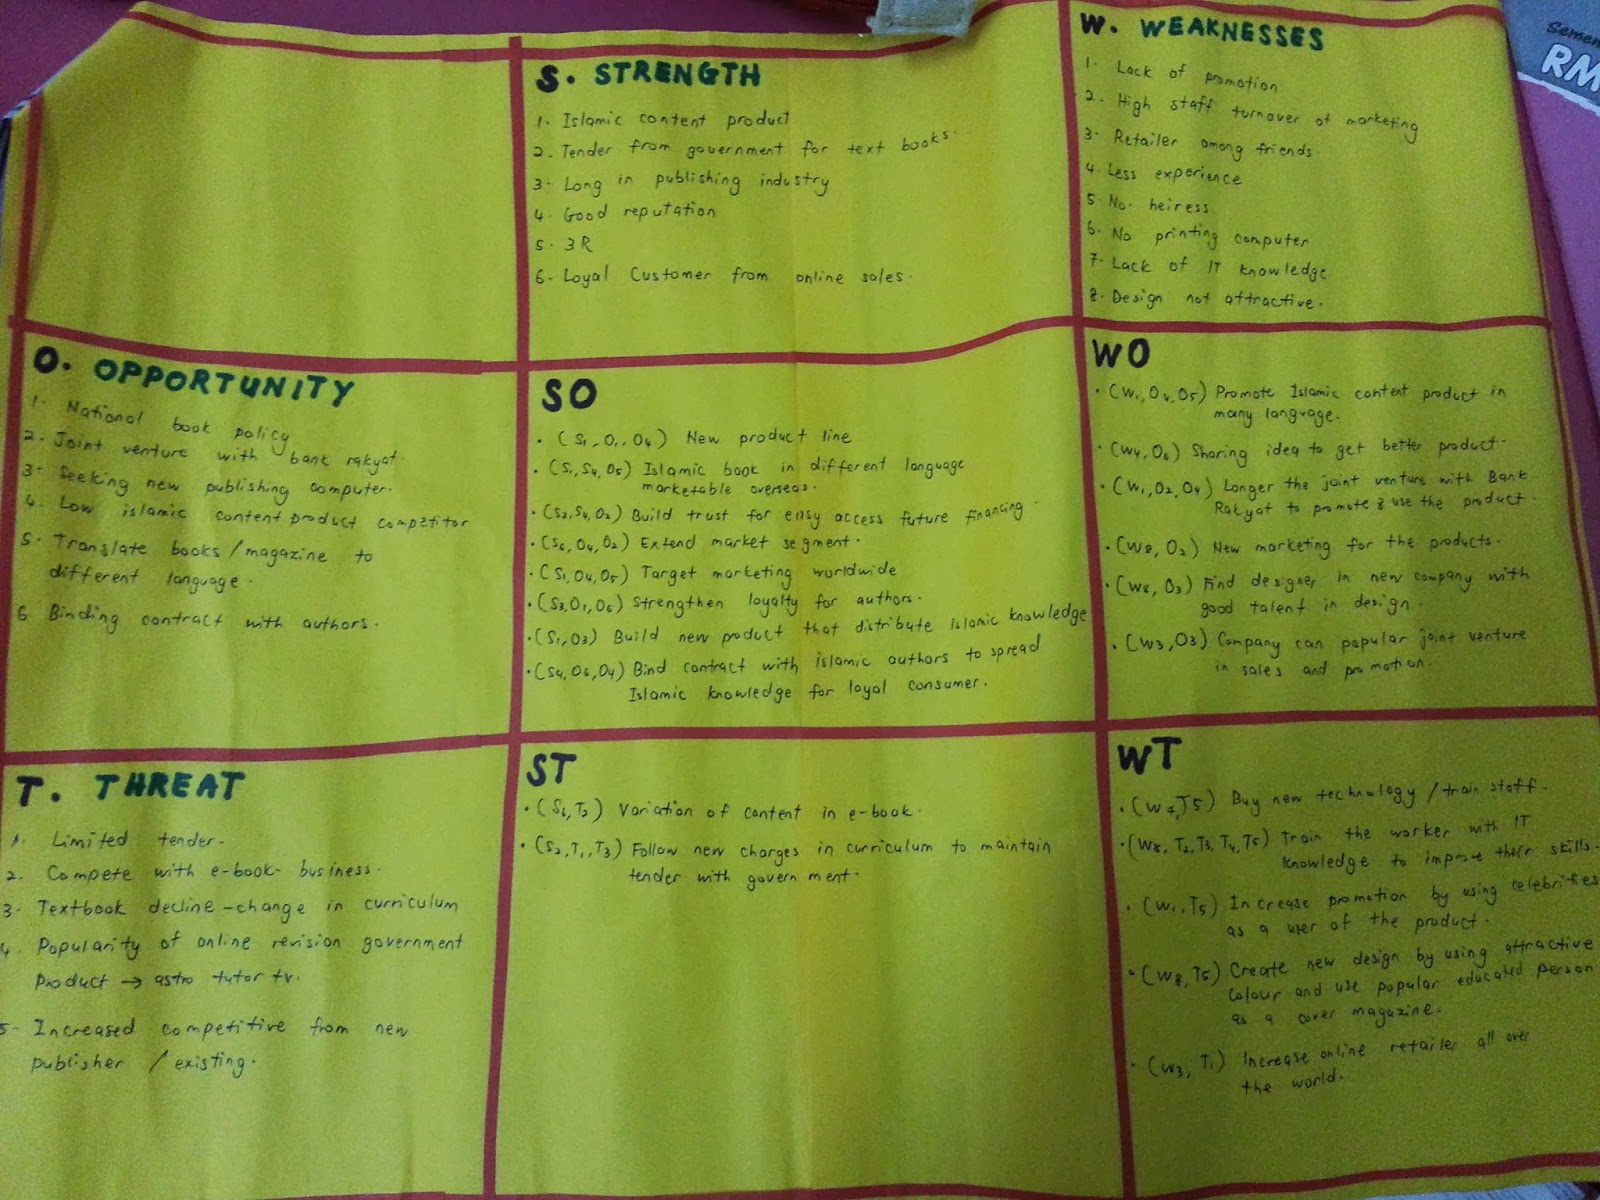 S. STRENGTH
1. Islamic content product
2. Tender from government for text books.
3. Long in publishing industry
4. Good reputation
5. 3R
6. Loyal Customer from online sales.
W. WEAKNESSES
1. Lack of promotion
2. High staff turnover of marketing
3. Retailer among friends.
4. Less experience
5. No heiress
6. No printing computer
7. Lack of IT knowledge
8. Design not attractive.
RM
O. OPPORTUNITY
1. National book policy
2. Joint venture with bank rakyat.
3. Seeking new publishing computer.
4. Low islamic content product competitor
5. Translate books/magazine to
different language.
6 Binding contract with authors.
SO
• (S1, O1, O4) New product line
• (S1, S4, O5) Islamic book in different language
marketable overseas.
• (S2, S4, O2) Build trust for easy access future financing.
• (S6, O4, O2) Extend market segment.
• (S1, O4, O5) Target marketing worldwide
• (S3, O1, O6) Strengthen loyalty for authors.
• (S1, O3) Build new product that distribute Islamic knowledge
• (S4, O6, O4) Bind contract with islamic authors to spread
Islamic knowledge for loyal consumer.
WO
• (W1, O4, O5) Promote Islamic content product in
many language.
• (W4, O6) Sharing idea to get better product.
• (W1, O2, O4) Longer the joint venture with Bank
Rakyat to promote & use the product.
• (W8, O2) New marketing for the products.
• (W8, O3) Find designer in new company with
good talent in design.
• (W3, O3) Company can popular joint venture
in sales and promotion.
T. THREAT
1. Limited tender.
2. Compete with e-book business.
3. Textbook decline - change in curriculum
4. Popularity of online revision government
product → astro tutor tv.
5. Increased competitive from new
publisher / existing.
ST
• (S6, T2) Variation of content in e-book.
• (S2, T1, T3) Follow new charges in curriculum to maintain
tender with government.
WT
• (W7, T5) Buy new technology / train staff.
• (W8, T2, T3, T4, T5) Train the worker with IT
knowledge to improve their skills.
• (W1, T5) Increase promotion by using celebrities
as a user of the product.
• (W8, T5) Create new design by using attractive
colour and use popular educated person
as a cover magazine.
• (W3, T1) Increase online retailer all over
the world.